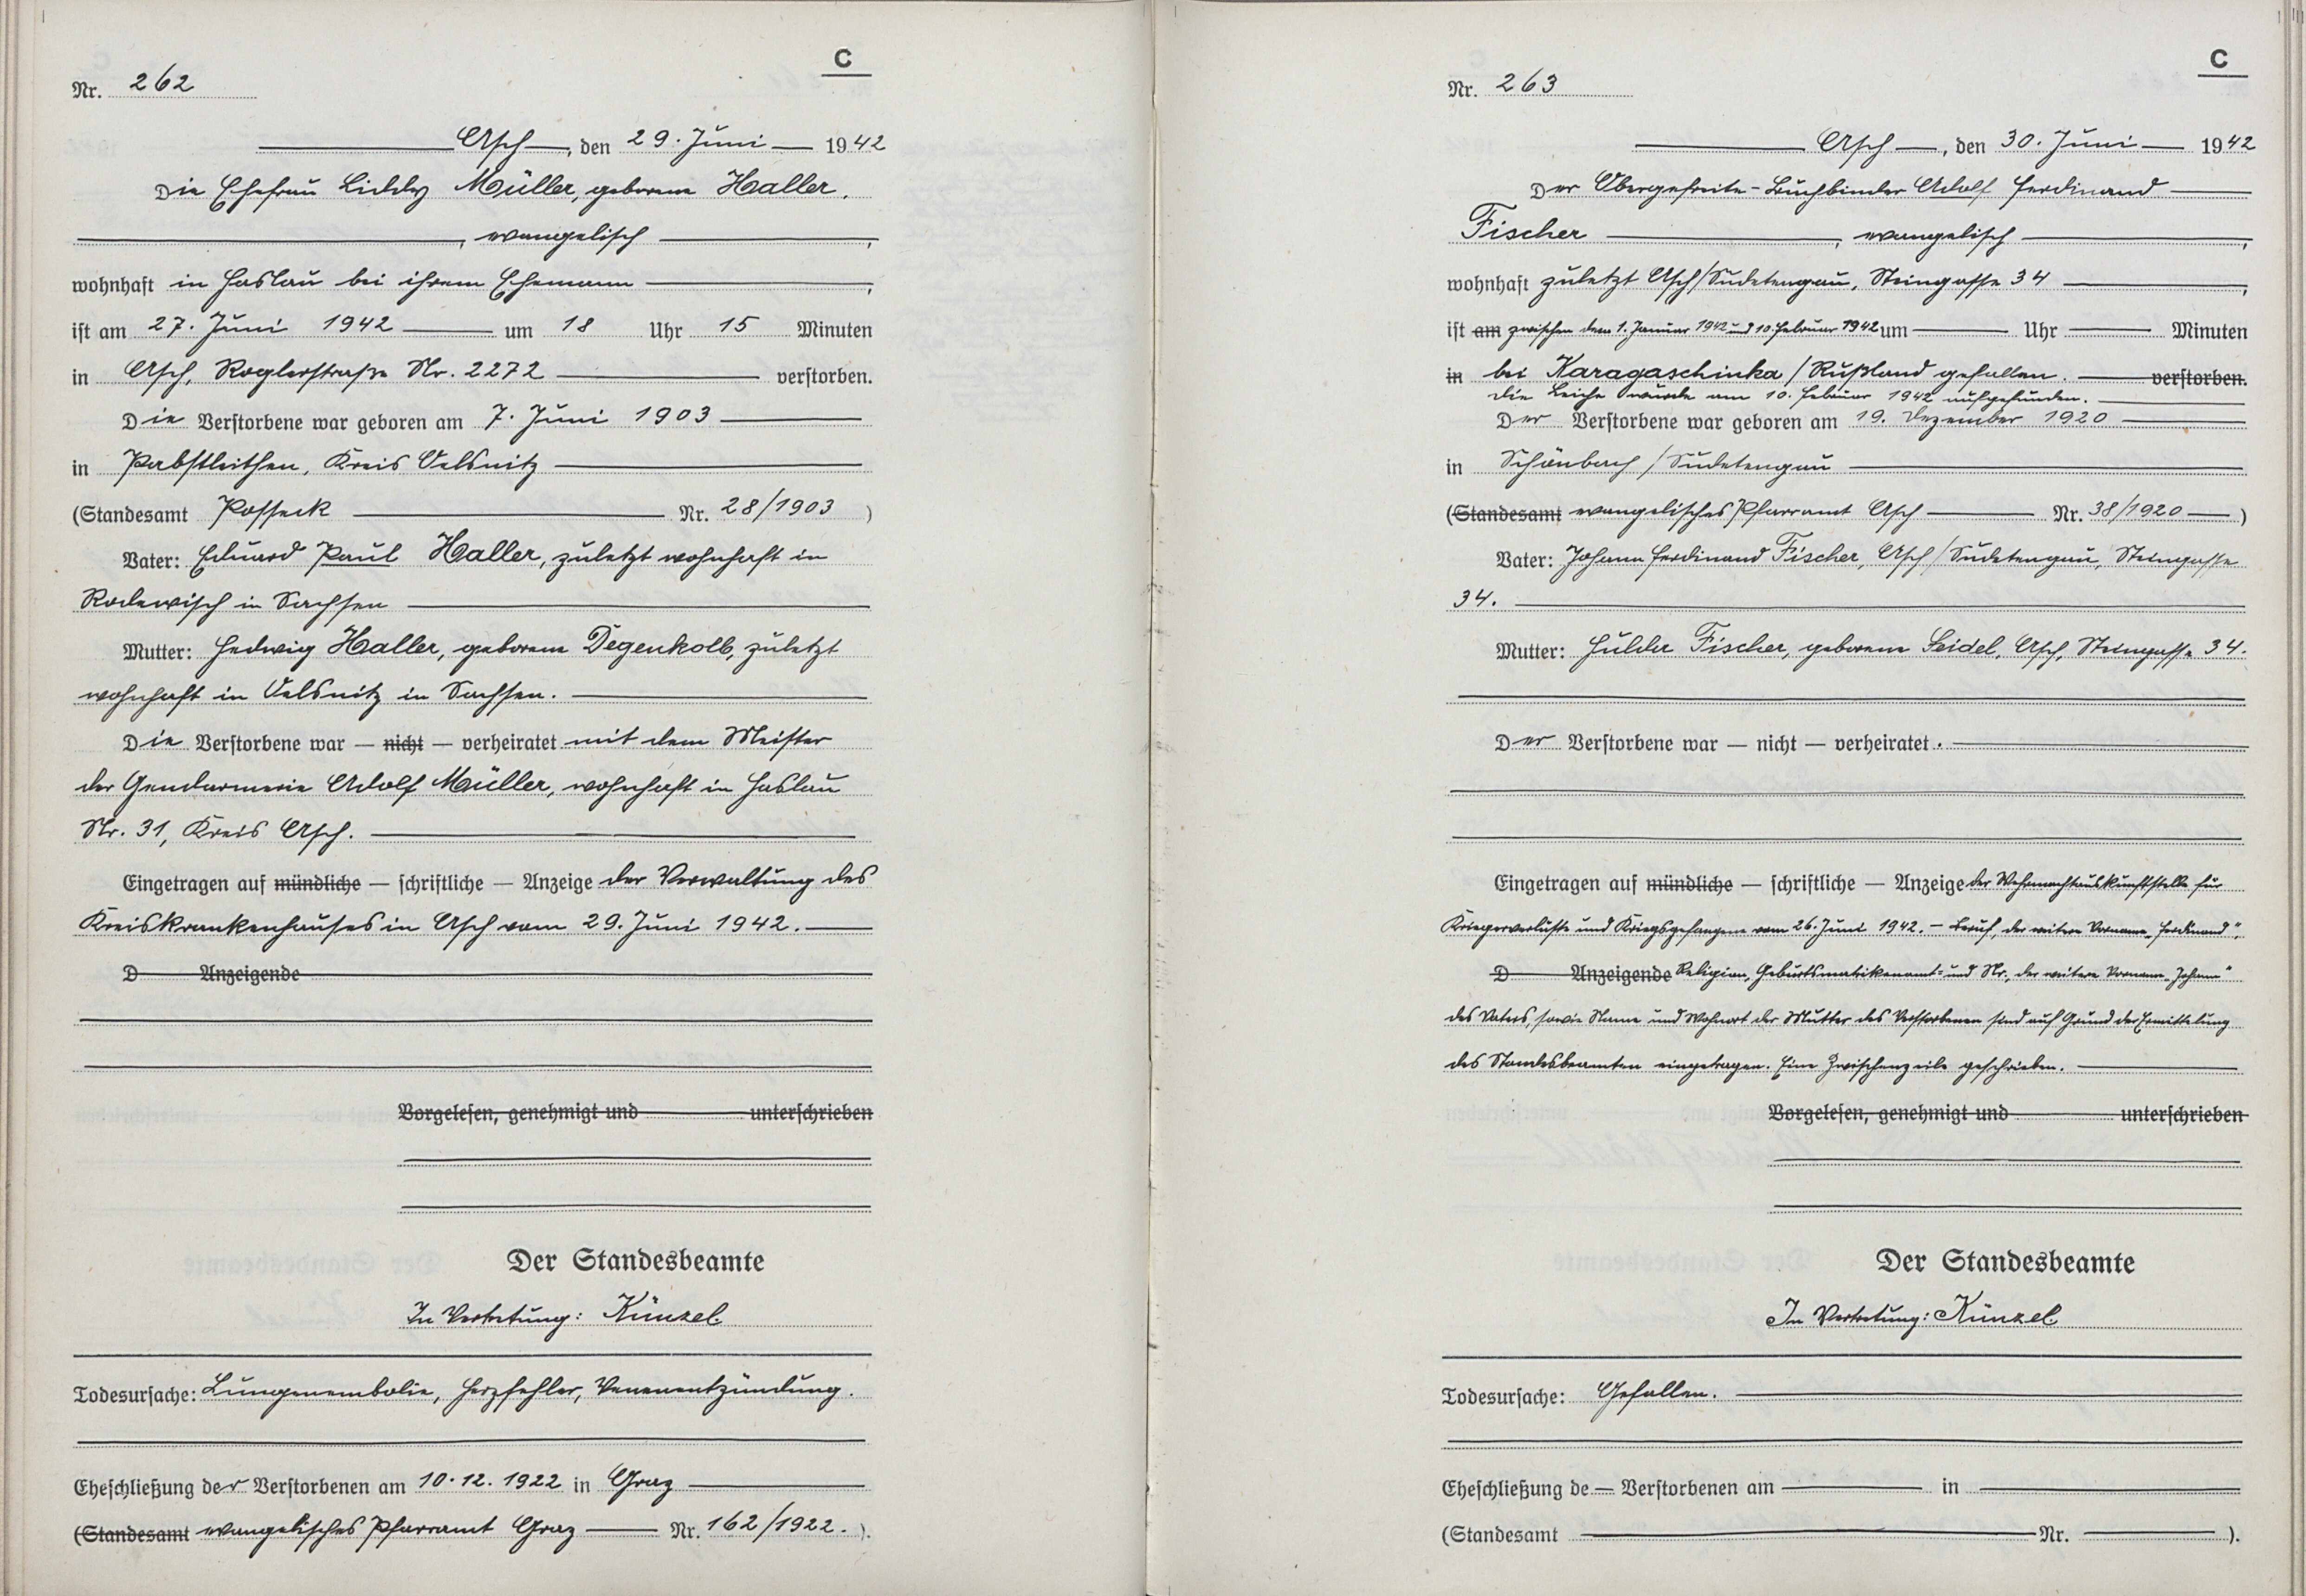 C
Nr. 262
Asch, den 29. Juni 1942
Die Ehefrau Liddy Müller, geborene Haller,
, evangelisch ,
wohnhaft in Haslau bei ihrem Ehemann ,
ist am 27. Juni 1942 um 18 Uhr 15 Minuten
in Asch, Roglerstraße Nr. 2272 verstorben.
Die Verstorbene war geboren am 7. Juni 1903
in Pabstleithen, Kreis Oelsnitz
(Standesamt Posseck Nr. 28/1903 )
Vater: Eduard Paul Haller, zuletzt wohnhaft in
Rodewisch in Sachsen
Mutter: Hedwig Haller, geborene Degenkolb, zuletzt
wohnhaft in Oelsnitz in Sachsen.
Die Verstorbene war — nicht — verheiratet mit dem Meister
der Gendarmerie Adolf Müller, wohnhaft in Haslau
Nr. 31, Kreis Asch.
Eingetragen auf mündliche — schriftliche — Anzeige der Verwaltung des
Kreiskrankenhauses in Asch vom 29. Juni 1942.
D Anzeigende
Vorgelesen, genehmigt und unterschrieben
Der Standesbeamte
In Vertretung: Künzel.
Todesursache: Lungenembolie, Herzfehler, Venenentzündung.
Eheschließung der Verstorbenen am 10.12.1922 in Graz
(Standesamt evangelisches Pfarramt Graz Nr. 162/1922. ).
C
Nr. 263
Asch, den 30. Juni 1942
Der Obergefreite - Buchbinder Adolf Ferdinand
Fischer , evangelisch ,
wohnhaft zuletzt Asch/Sudetengau, Steingasse 34 ,
ist am zwischen dem 1. Januar 1942 und 10. Februar 1942 um Uhr Minuten
in bei Karagaschinka / Rußland gefallen. verstorben.
Die Leiche wurde am 10. Februar 1942 aufgefunden.
Der Verstorbene war geboren am 19. Dezember 1920
in Schönbach / Sudetengau
(Standesamt evangelisches Pfarramt Asch Nr. 38/1920 )
Vater: Johann Ferdinand Fischer, Asch/Sudetengau, Steingasse
34.
Mutter: Hulda Fischer, geborene Seidel, Asch, Steingasse 34.
Der Verstorbene war — nicht — verheiratet.
Eingetragen auf mündliche — schriftliche — Anzeige der Wehrmachtauskunftstelle für
Kriegerverluste und Kriegsgefangene vom 26. Juni 1942. – Beruf, der weitere Vorname „Ferdinand",
D Anzeigende Religion, Geburtsmatrikenamt= und Nr., der weitere Vorname „Johann"
des Vaters, sowie Name und Wohnort der Mutter des Verstorbenen sind auf Grund der Ermittelung
des Standesbeamten eingetragen. Eine Zwischenzeile geschrieben.
Vorgelesen, genehmigt und unterschrieben
Der Standesbeamte
In Vertretung: Künzel
Todesursache: Gefallen.
Eheschließung de Verstorbenen am in
(Standesamt Nr. ).